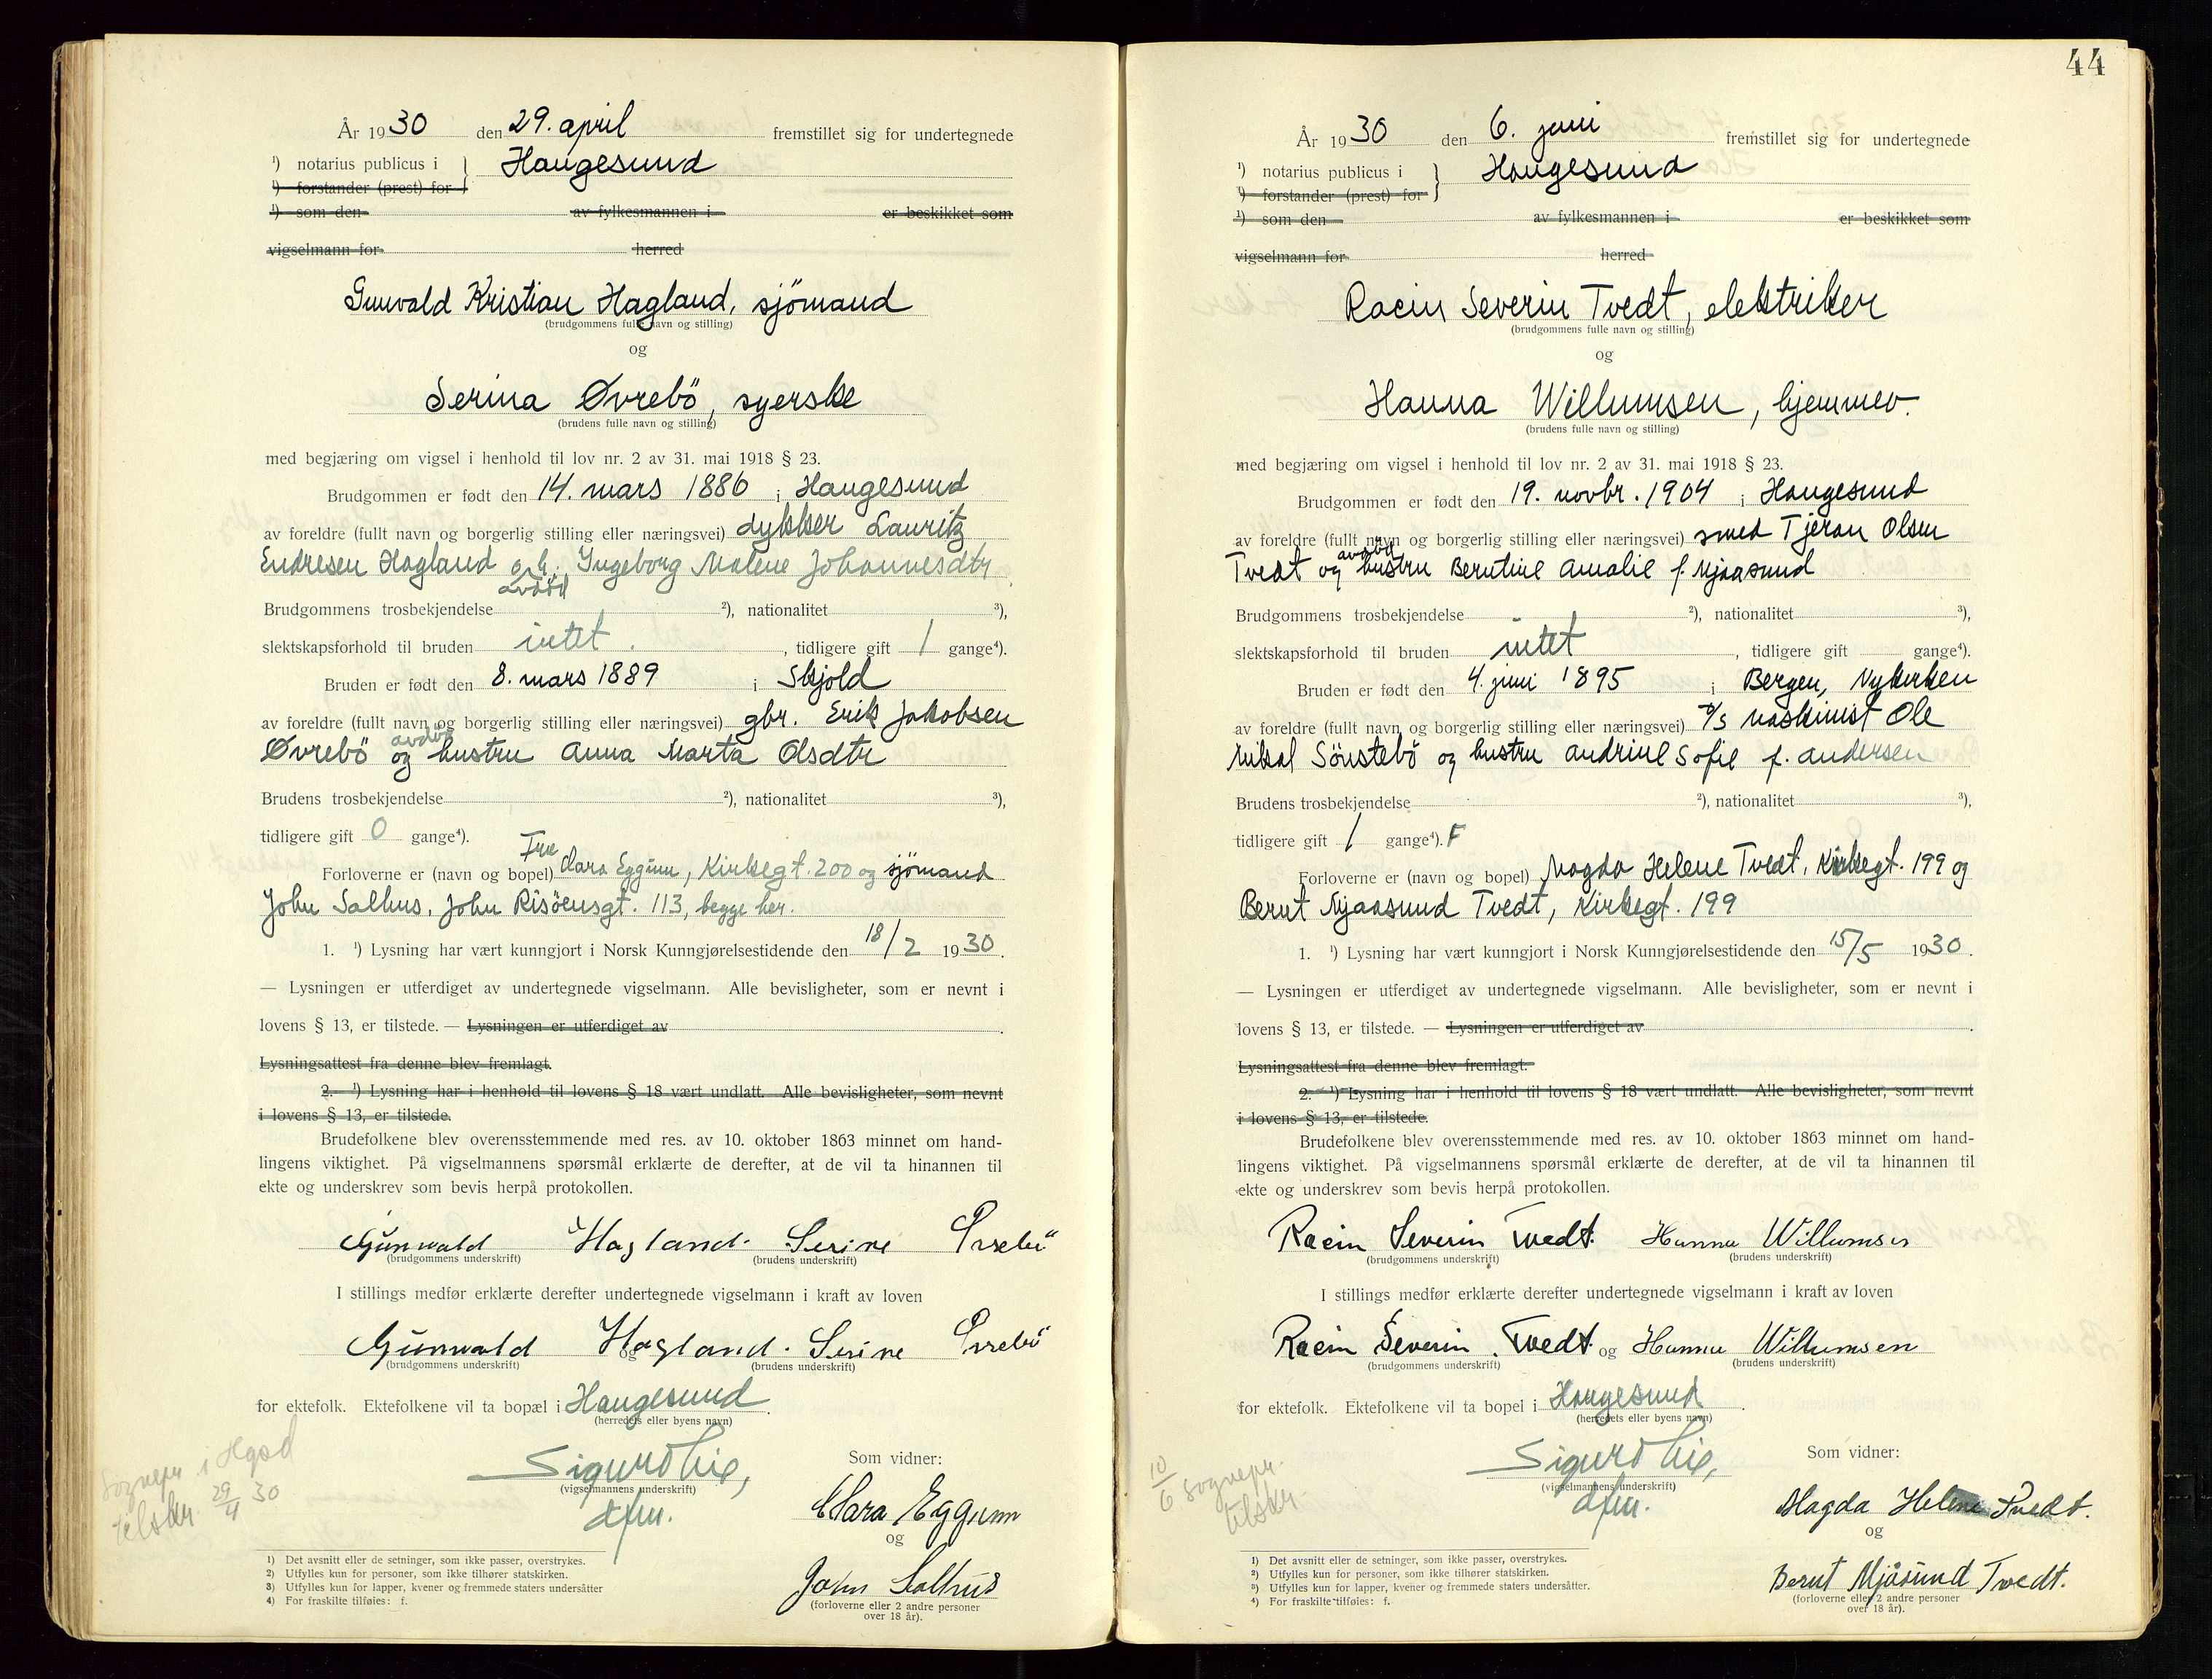 År 1930 den 29. april fremstillet sig for undertegnede
¹) notarius publicus i } Haugesund
¹) forstander (prest) for
¹) som den av fylkesmannen i er beskikket som
vigselmann for herred
Gunvald Kristian Hagland, sjömand
(brudgommens fulle navn og stilling)
og
Serina Øvrebö, syerske
(brudens fulle navn og stilling)
med begjæring om vigsel i henhold til lov nr. 2 av 31. mai 1918 § 23.
Brudgommen er født den 14. mars 1886 i Haugesund
av foreldre (fullt navn og borgerlig stilling eller næringsvei) dykker Lauritz
Endresen Hagland o.h. Ingeborg Malene Johannesdtr
avdöd
Brudgommens trosbekjendelse ²), nationalitet ³),
slektskapsforhold til bruden intet. , tidligere gift 1 gange⁴).
Bruden er født den 8. mars 1889 i Skjold
av foreldre (fullt navn og borgerlig stilling eller næringsvei) gbr. Erik Jakobsen
avdöd
Øvrebö og hustru Anna Marta Olsdtr
Brudens trosbekjendelse ²), nationalitet ³),
tidligere gift 0 gange⁴).
Fru
Forloverne er (navn og bopel) Clara Eggum, Kirkegt. 200 og sjömand
John Salhus, John Risöensgt. 113, begge her.
1. ¹) Lysning har vært kunngjort i Norsk Kunngjørelsestidende den 18/2 1930.
— Lysningen er utferdiget av undertegnede vigselmann. Alle bevisligheter, som er nevnt i
lovens § 13, er tilstede. — Lysningen er utferdiget av .
Lysningsattest fra denne blev fremlagt.
2. ¹) Lysning har i henhold til lovens § 18 vært undlatt. Alle bevisligheter, som nevnt
i lovens § 13, er tilstede.
Brudefolkene blev overensstemmende med res. av 10. oktober 1863 minnet om hand-
lingens viktighet. På vigselmannens spørsmål erklærte de derefter, at de vil ta hinannen til
ekte og underskrev som bevis herpå protokollen.
Gunwald Hagland. Serine Øvrebö
(brudgommens underskrift) (brudens underskrift)
I stillings medfør erklærte derefter undertegnede vigselmann i kraft av loven
Gunwald Hagland. og Serine Øvrebö
(brudgommens underskrift) (brudens underskrift)
for ektefolk. Ektefolkene vil ta bopæl i Haugesund.
(herredets eller byens navn)
Sognepr i Hgsd
tilskr. 29/4 30
Som vidner:
(vigselmannens underskrift)
Clara Eggum
og
John Salhus
(forloverne eller 2 andre personer
over 18 år).
¹) Det avsnitt eller de setninger, som ikke passer, overstrykes.
²) Utfylles kun for personer, som ikke tilhører statskirken.
³) Utfylles kun for lapper, kvener og fremmede staters undersåtter
⁴) For fraskilte tilføies: f.
44
År 1930 den 6. juni fremstillet sig for undertegnede
¹) notarius publicus i } Haugesund
¹) forstander (prest) for
¹) som den av fylkesmannen i er beskikket som
vigselmann for herred
Racin Severin Tvedt, elektriker
(brudgommens fulle navn og stilling)
og
Hanna Willumsen, hjemmev.
(brudens fulle navn og stilling)
med begjæring om vigsel i henhold til lov nr. 2 av 31. mai 1918 § 23.
Brudgommen er født den 19. novbr. 1904 i Haugesund
av foreldre (fullt navn og borgerlig stilling eller næringsvei) smed Tjeran Olsen
avdöd
Tvedt og hustru Berntine Amalie f. Mjaasund
Brudgommens trosbekjendelse ²), nationalitet ³),
slektskapsforhold til bruden intet , tidligere gift gange⁴).
Bruden er født den 4. juni 1895 i Bergen, Nykirken
av foreldre (fullt navn og borgerlig stilling eller næringsvei) maskinist Ole
Mikal Sönstebö og hustru Andrine Sofie f. Andersen
Brudens trosbekjendelse ²), nationalitet ³),
tidligere gift 1 gange⁴). F
Forloverne er (navn og bopel) Magda Helene Tvedt, Kirkegt. 199 og
Bernt Mjaasund Tvedt, Kirkegt. 199
1. ¹) Lysning har vært kunngjort i Norsk Kunngjørelsestidende den 15/5 1930.
— Lysningen er utferdiget av undertegnede vigselmann. Alle bevisligheter, som er nevnt i
lovens § 13, er tilstede. — Lysningen er utferdiget av .
Lysningsattest fra denne blev fremlagt.
2. ¹) Lysning har i henhold til lovens § 18 vært undlatt. Alle bevisligheter, som nevnt
i lovens § 13, er tilstede.
Brudefolkene blev overensstemmende med res. av 10. oktober 1863 minnet om hand-
lingens viktighet. På vigselmannens spørsmål erklærte de derefter, at de vil ta hinannen til
ekte og underskrev som bevis herpå protokollen.
Racin Severin Tvedt. Hanna Willumsen
(brudgommens underskrift) (brudens underskrift)
I stillings medfør erklærte derefter undertegnede vigselmann i kraft av loven
Racin Severin Tvedt. og Hanna Willumsen
(brudgommens underskrift) (brudens underskrift)
for ektefolk. Ektefolkene vil ta bopel i Haugesund.
(herredets eller byens navn)
10/6 sognepr.
tilskr.
Som vidner:
(vigselmannens underskrift)
Magda Helene Tvedt.
og
Bernt Mjåsund Tvedt.
(forloverne eller 2 andre personer
over 18 år).
¹) Det avsnitt eller de setninger, som ikke passer, overstrykes.
²) Utfylles kun for personer, som ikke tilhører statskirken.
³) Utfylles kun for lapper, kvener og fremmede staters undersåtter.
⁴) For fraskilte tilføies: f.